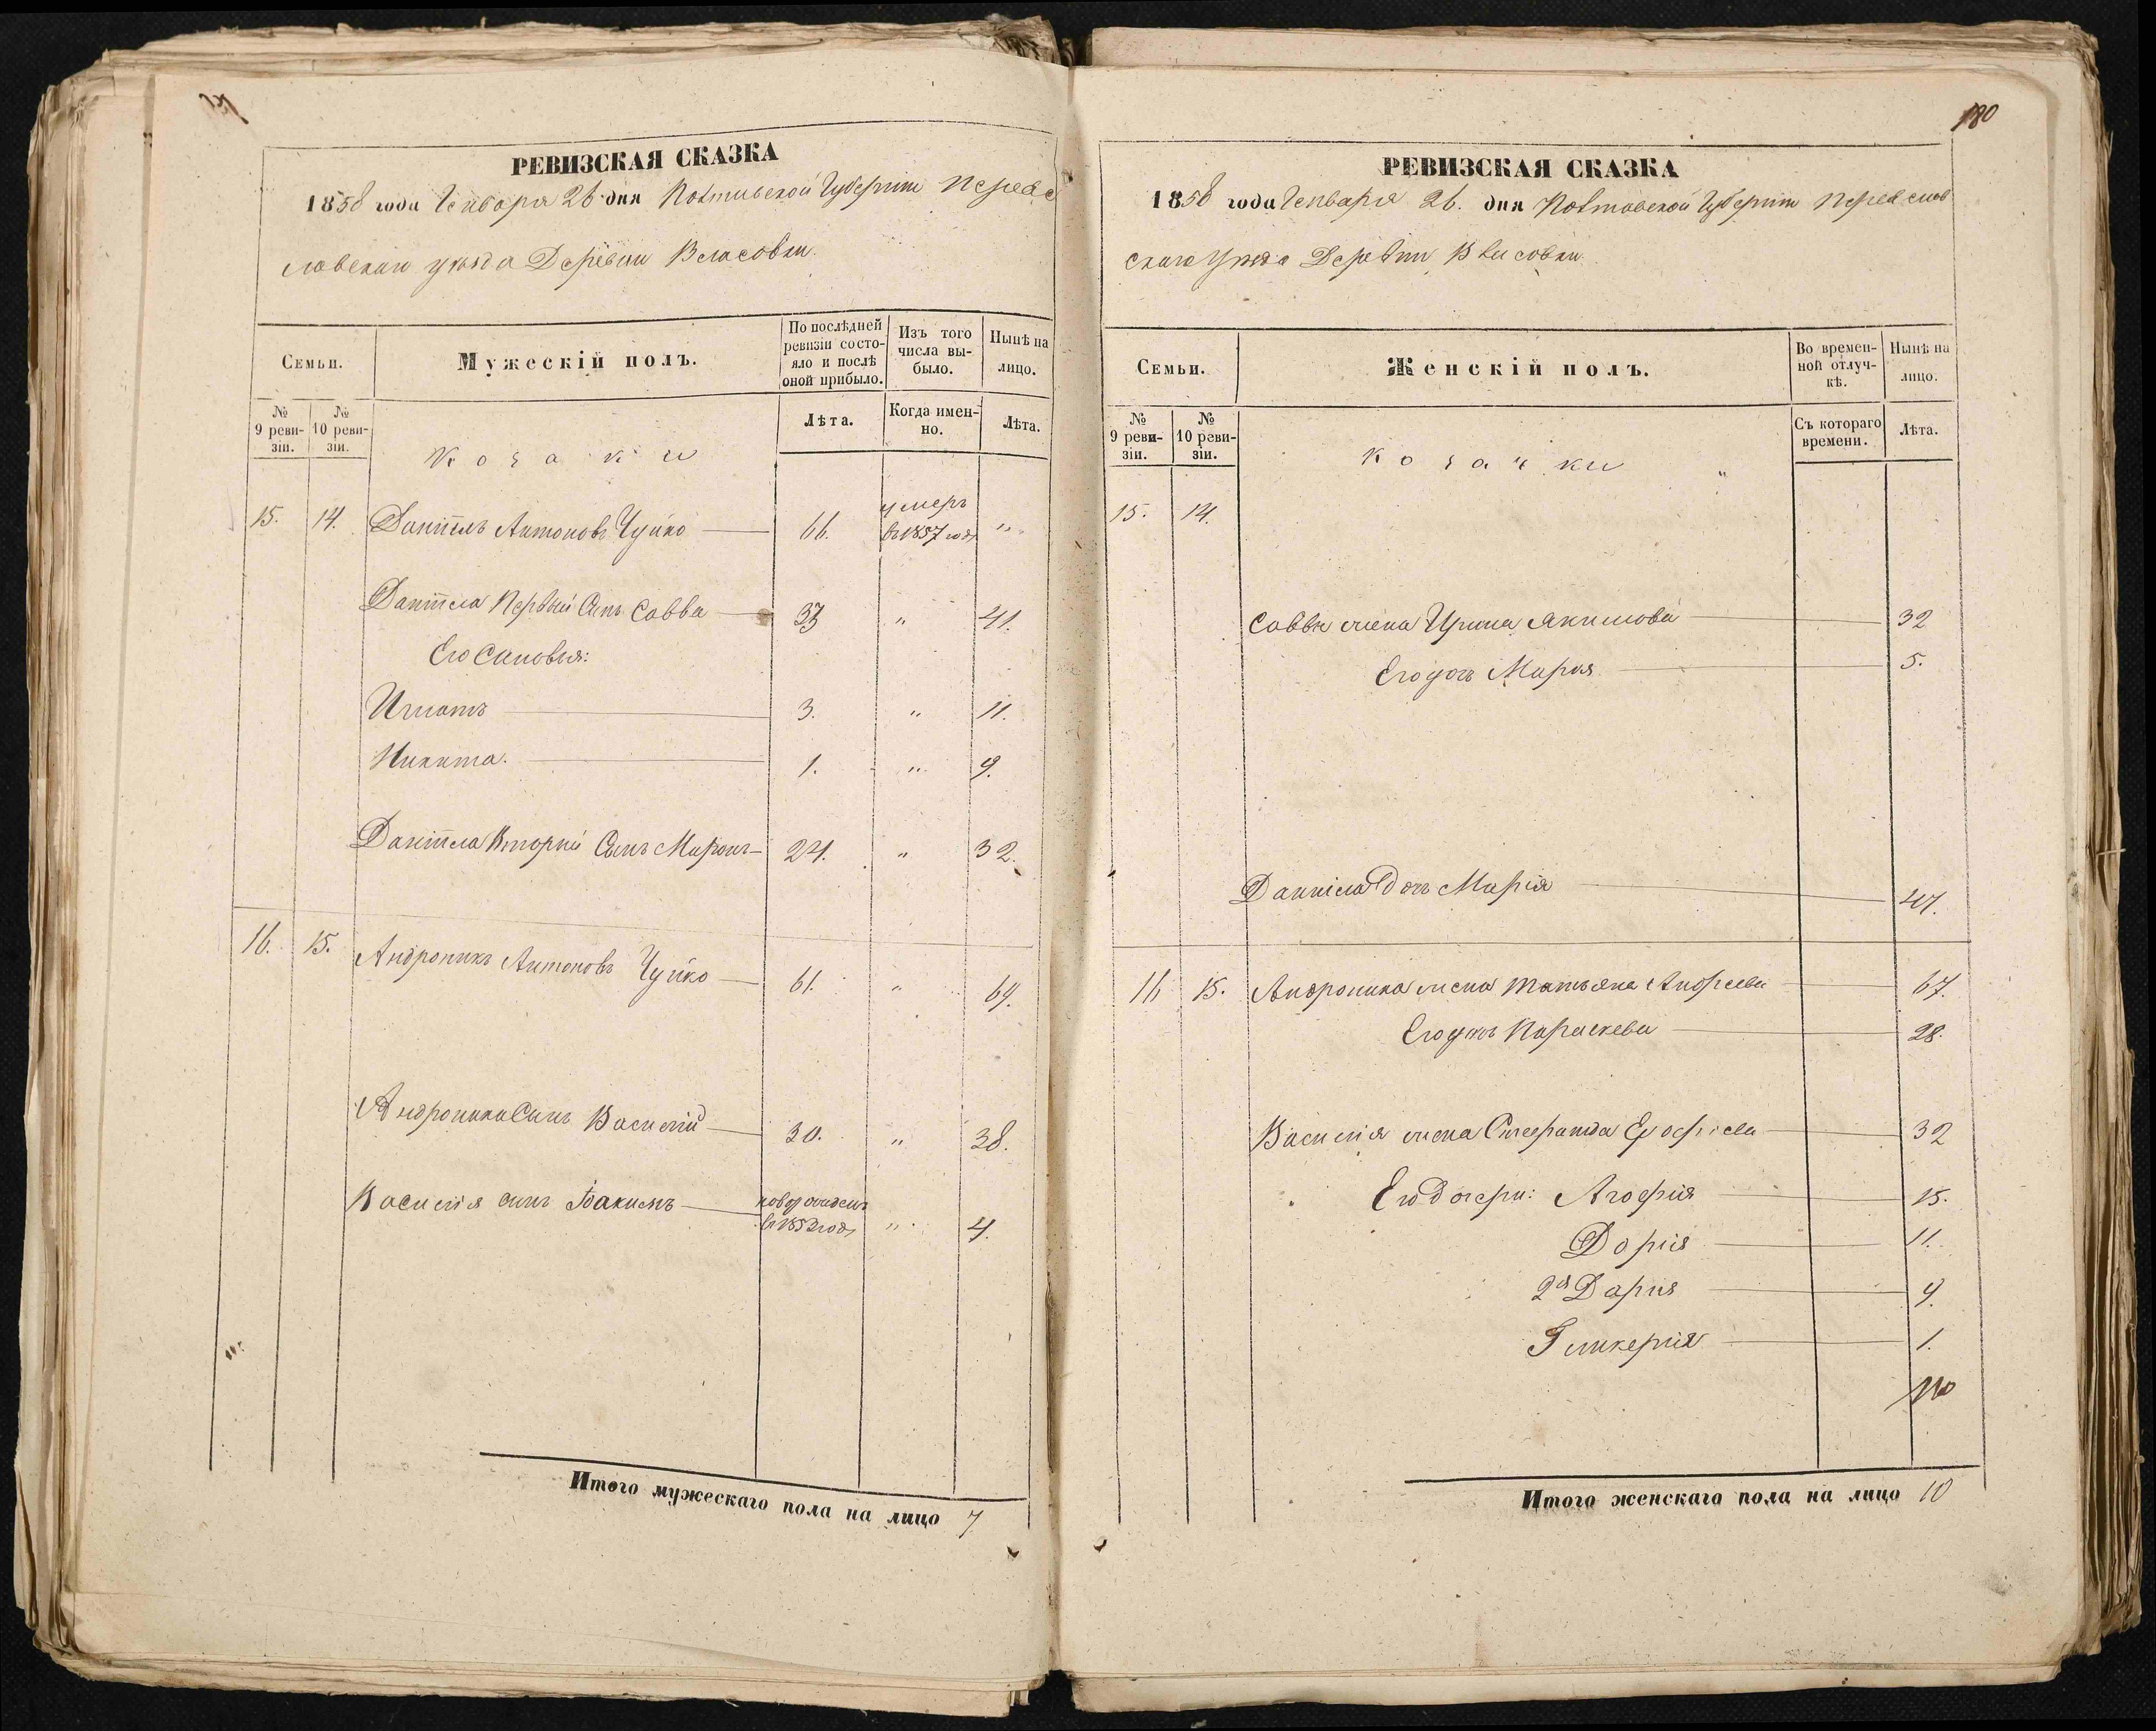 РЕВИЗСКАЯ СКАЗКА
1858 года Генваря 26 дня Полтавской Губернии Переяс
лавскаго уезда Деревни Власовки.
Семьи.
Мужескій полъ.
По послѣдней ревизіи состо-
яло и послѣ оной прибыло.
Изъ того числа вы-
было.
Нынѣ на лицо.
№ 9 реви-
зіи.
№ 10 реви-
зіи.
Козаки
Лѣта.
Когда имен-
но.
Лѣта.
15. 14. Даніилъ Антоновъ Чуйко 66. умеръ
въ 1857 годѣ "
Даніила Первый Сынъ Савва 33 " 41.
Его Сыновья:
Игнатъ 3. " 11.
Никита. 1. " 9.
Даніила Вторый Сынъ Миронъ 24. " 32.
16. 15. Андроникъ Антоновъ Чуйко 61. " 69.
Андроника Сынъ Василій 30. " 38.
Василія сынъ Іоакимъ новорожденъ
въ 1852 годѣ " 4.
Итого мужескаго пола на лицо 7
180
РЕВИЗСКАЯ СКАЗКА
1858 года Генваря 26. дня Полтавской Губернии Переяслав
скаго Уезда Деревни Власовки
Семьи.
Женскій полъ.
Во времен-
ной отлуч-
кѣ.
Нынѣ на лицо.
№ 9 реви-
зіи.
№ 10 реви-
зіи.
Козачки "
Съ котораго времени.
Лѣта.
15. 14.
Саввы жена Ирина Якимова 32
Его дочь Мария 5.
Даниіла дочь Марія 47.
16 15. Андроника жена Татьяна Андреева 67.
Его дочь Параскева 28.
Василія жена 32
Его Дочери: Агофія 15.
Дорія 11.
2я Дария 9.
Гликерія 1.
10
Итого женскаго пола на лицо 10